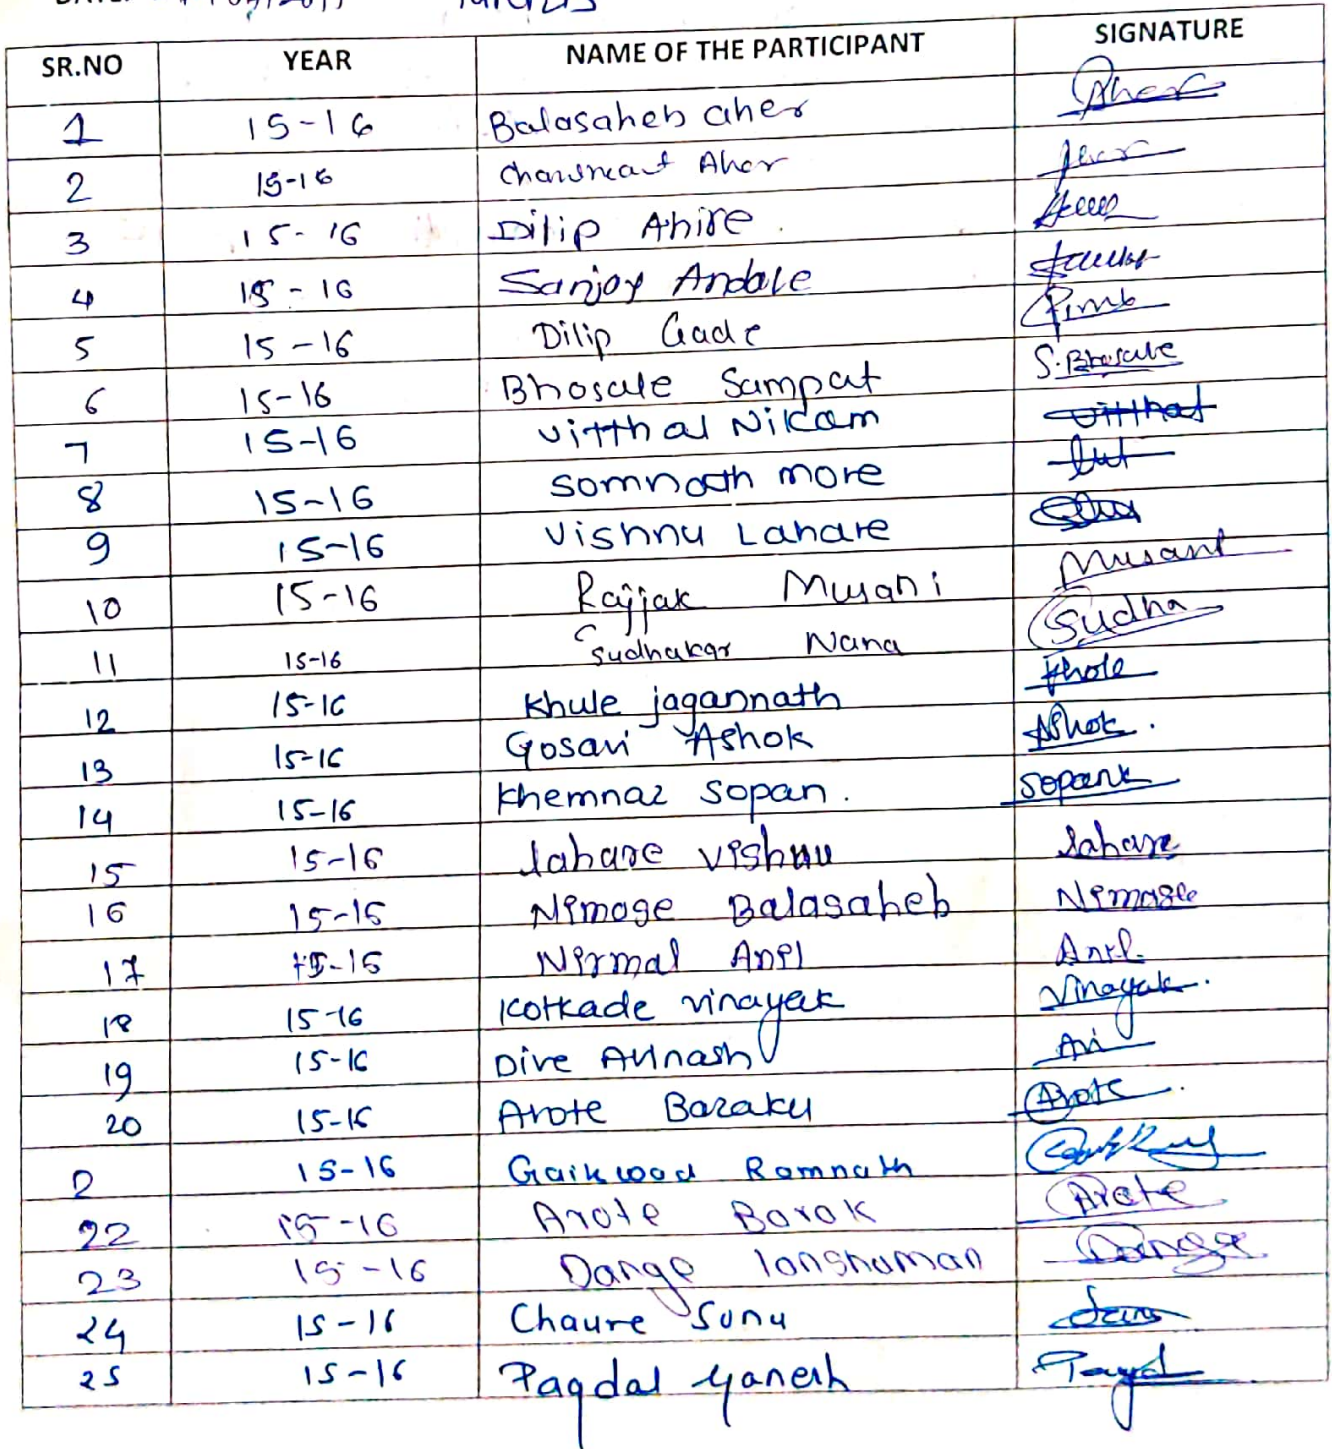 SR.NO YEAR NAME OF THE PARTICIPANT SIGNATURE
1 15-16 Balasaheb aher Aher
2 15-16 Aher
3 15-16 Dilip Ahire
4 15-16 Sanjay Andale
5 15-16 Dilip Gade
6 15-16 Bhosale Sampat S.Bhosale
7 15-16 Vitthal Nikam Vitthal
8 15-16 Somnath more
9 15-16 Vishnu Lahare
10 15-16 Rajjak Musani Musani
11 15-16 Sudhakar Nana Sudha
12 15-16 Khule jagannath
13 15-16 Gosavi Ashok Ashok.
14 15-16 Khemnar Sopan. Sopan
15 15-16 lahare vishnu lahare
16 15-15 Nimoge Balasaheb Nimage
17 15-15 Nirmal Anil Anil.
18 15-16 Kotkade vinayak Vinayak.
19 15-16 Dive Avinash Avi
20 15-16 Arote Baraku Arote.
2 15-16 Gaikwad Ramnath
22 15-16 Arote Barak Arote
23 15-16 Dange Dange
24 15-16 Chaure Sonu
25 15-16 Pagdal Ganesh